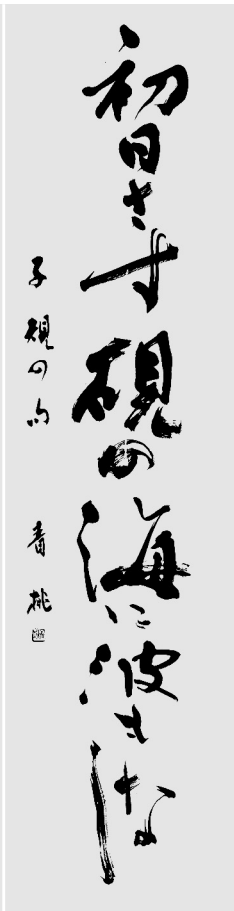 初日さす硯の海に波もなし
子規の句